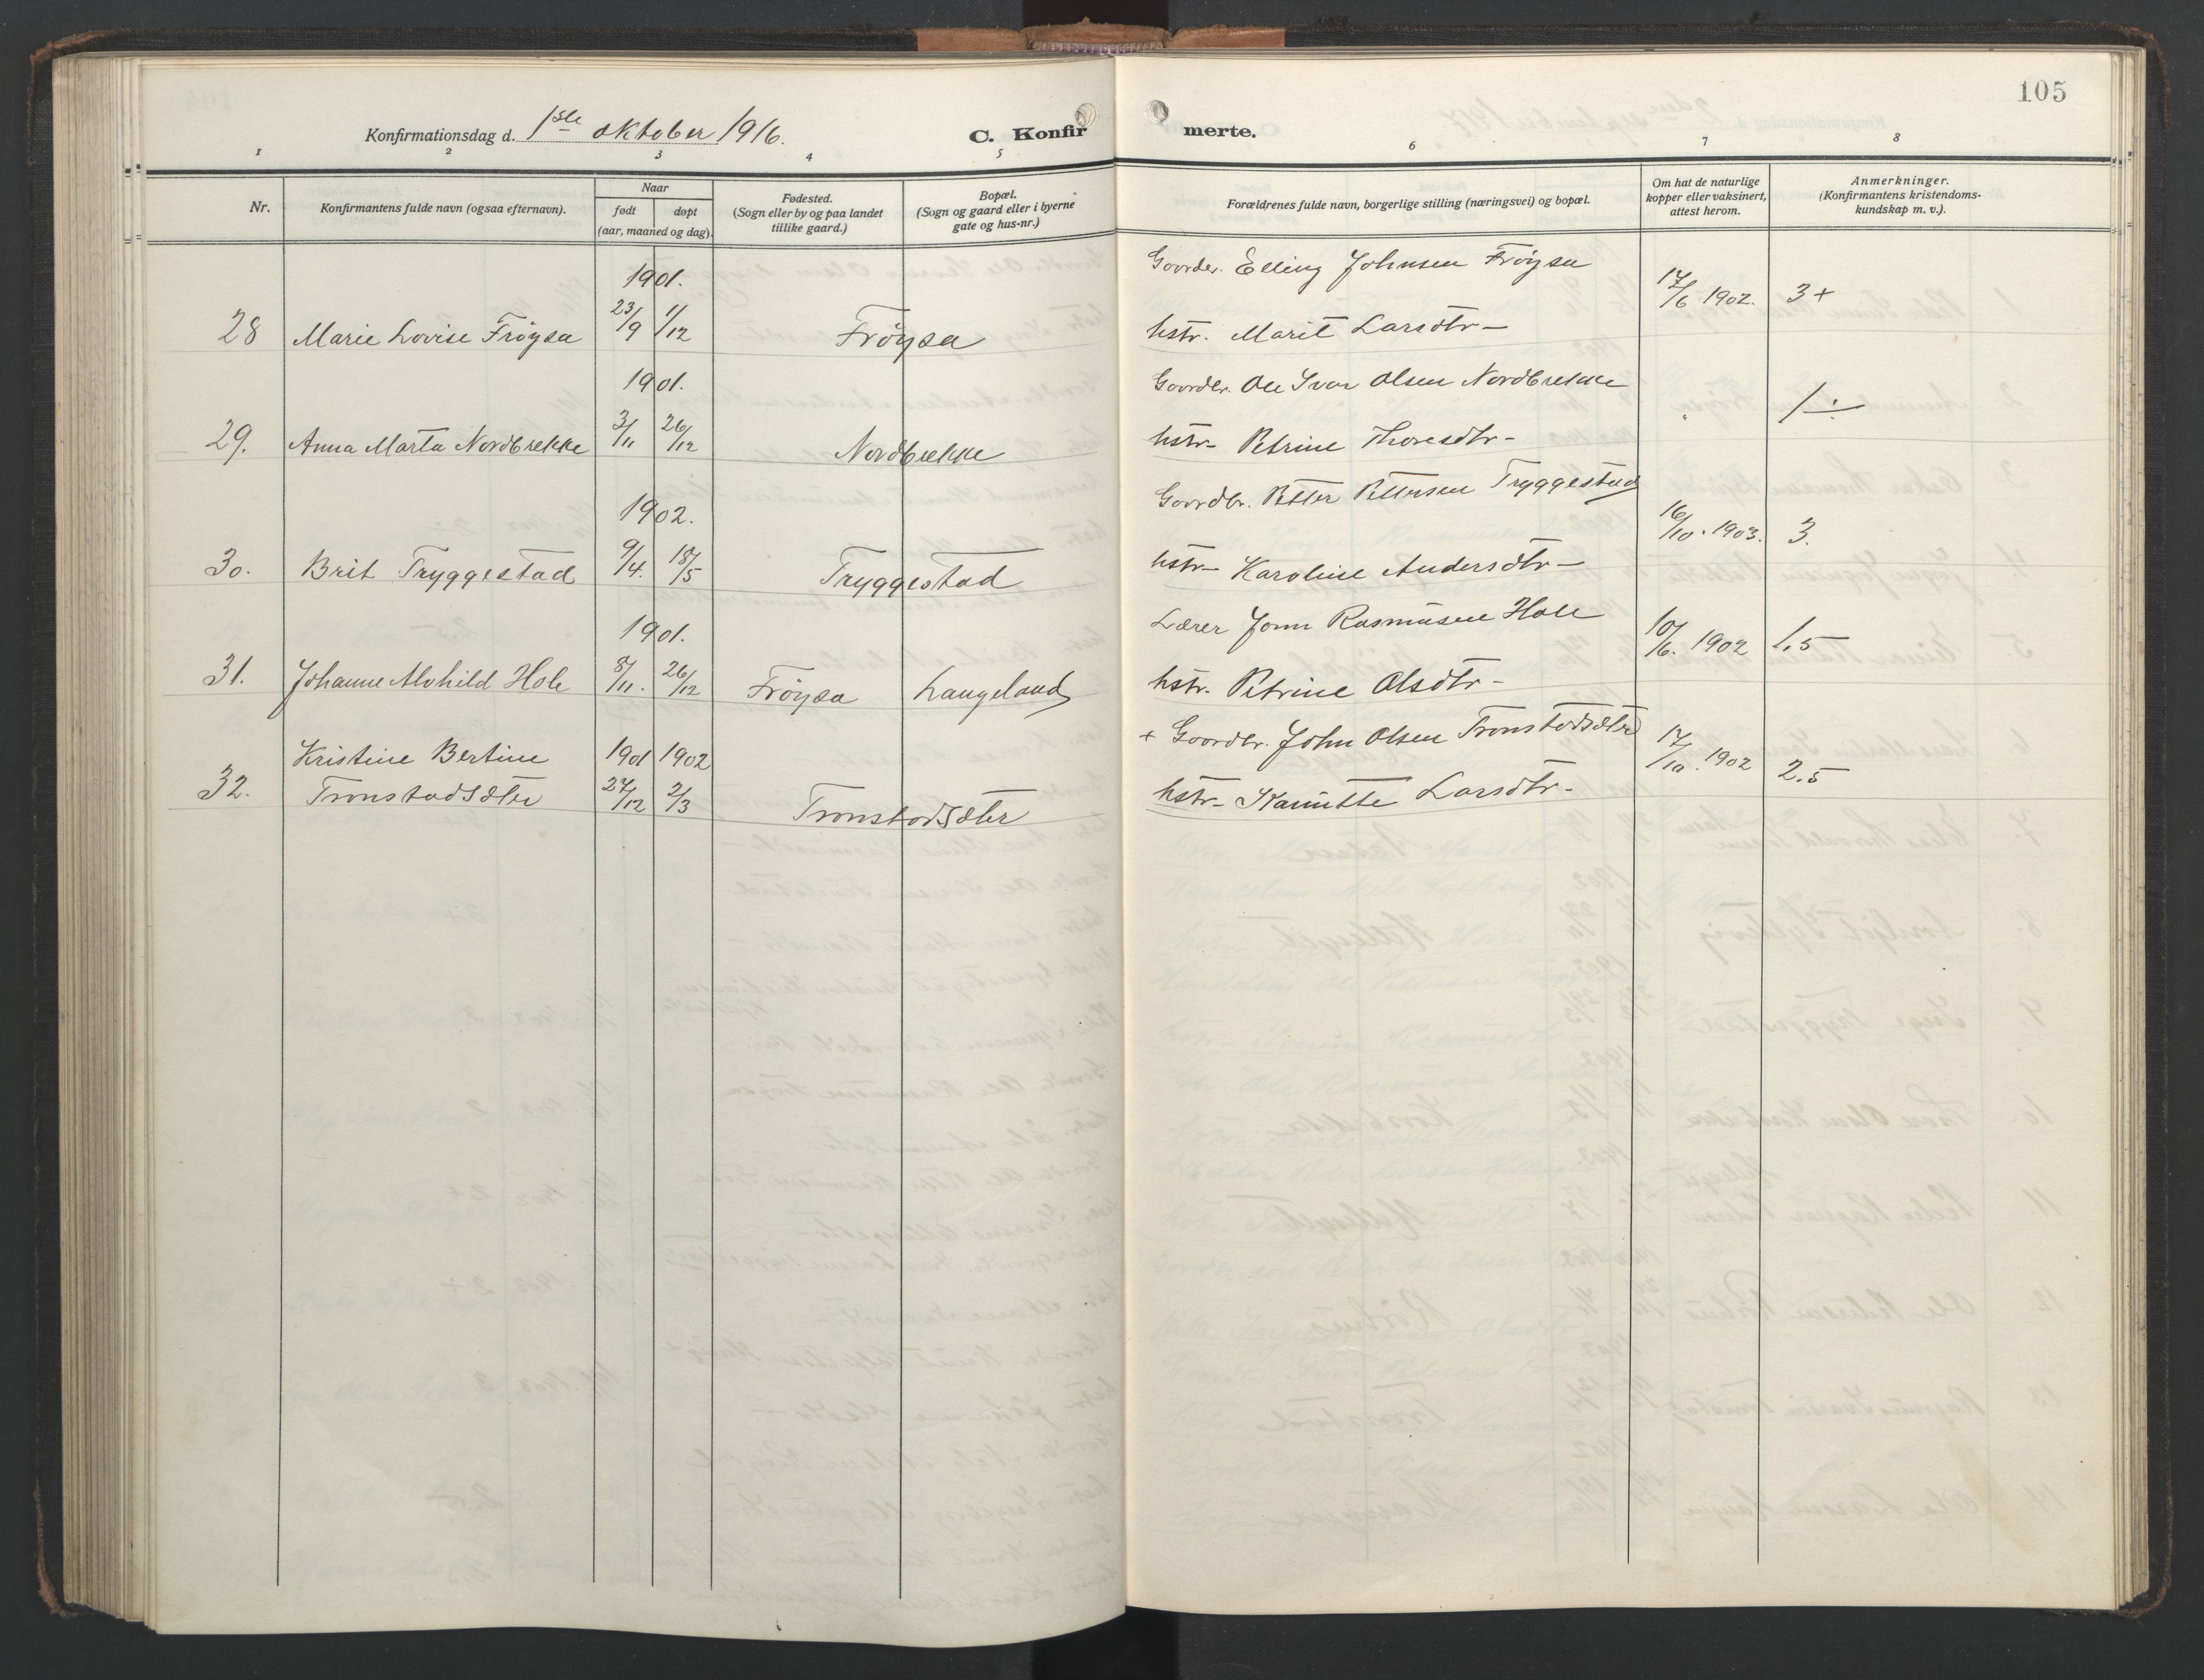 105
Konfirmationsdag d. 1ste oktober 1916.
C. Konfirmerte.
1 2 3 4 5 6 7 8
Nr.
Konfirmantens fulde navn (ogsaa efternavn).
Naar
født døpt
(aar, maaned og dag).
Fødested.
(Sogn eller by og paa landet
tillike gaard.)
Bopæl.
(Sogn og gaard eller i byerne
gate og hus-nr.)
Forældrenes fulde navn, borgerlige stilling (næringsvei) og bopæl.
Om hat de naturlige
kopper eller vaksinert,
attest herom.
Anmerkninger.
(Konfirmantens kristendoms-
kundskap m. v.).
1901. Goordbr. Elling Johnsen Frøysa
28 Marie Lovise Frøysa 23/9 1/12 Frøysa hstr. Marit Larsdtr – 17/6 1902. 3+
1901. Goordbr. Ole Ivar Olsen Nordbrekke
29. Anna Marta Nordbrekke 3/11 26/12 Nordbrekke hstr – Petrine Thoresdtr – " 1÷
1902. Goordbr. Petter Pettersen Tryggestad
30. Brit Tryggestad 9/4. 18/5 Tryggestad hstr – Karoline Andersdtr – 16/10. 1903. 3.
1901. Lærer Jonn Rasmusen Hole
31. Johanne Alvhild Hole 8/11. 26/12 Frøysa Langeland hstr. Petrine Olsdtr – 10/6. 1902 1.5
Kristine Bertine 1901 1902 + Goordbr. John Olsen Tronstadsæter
32. Tronstadsæter 27/12 2/3 Tronstadsæter hstr – Larsdtr – 17/10. 1902 2.5